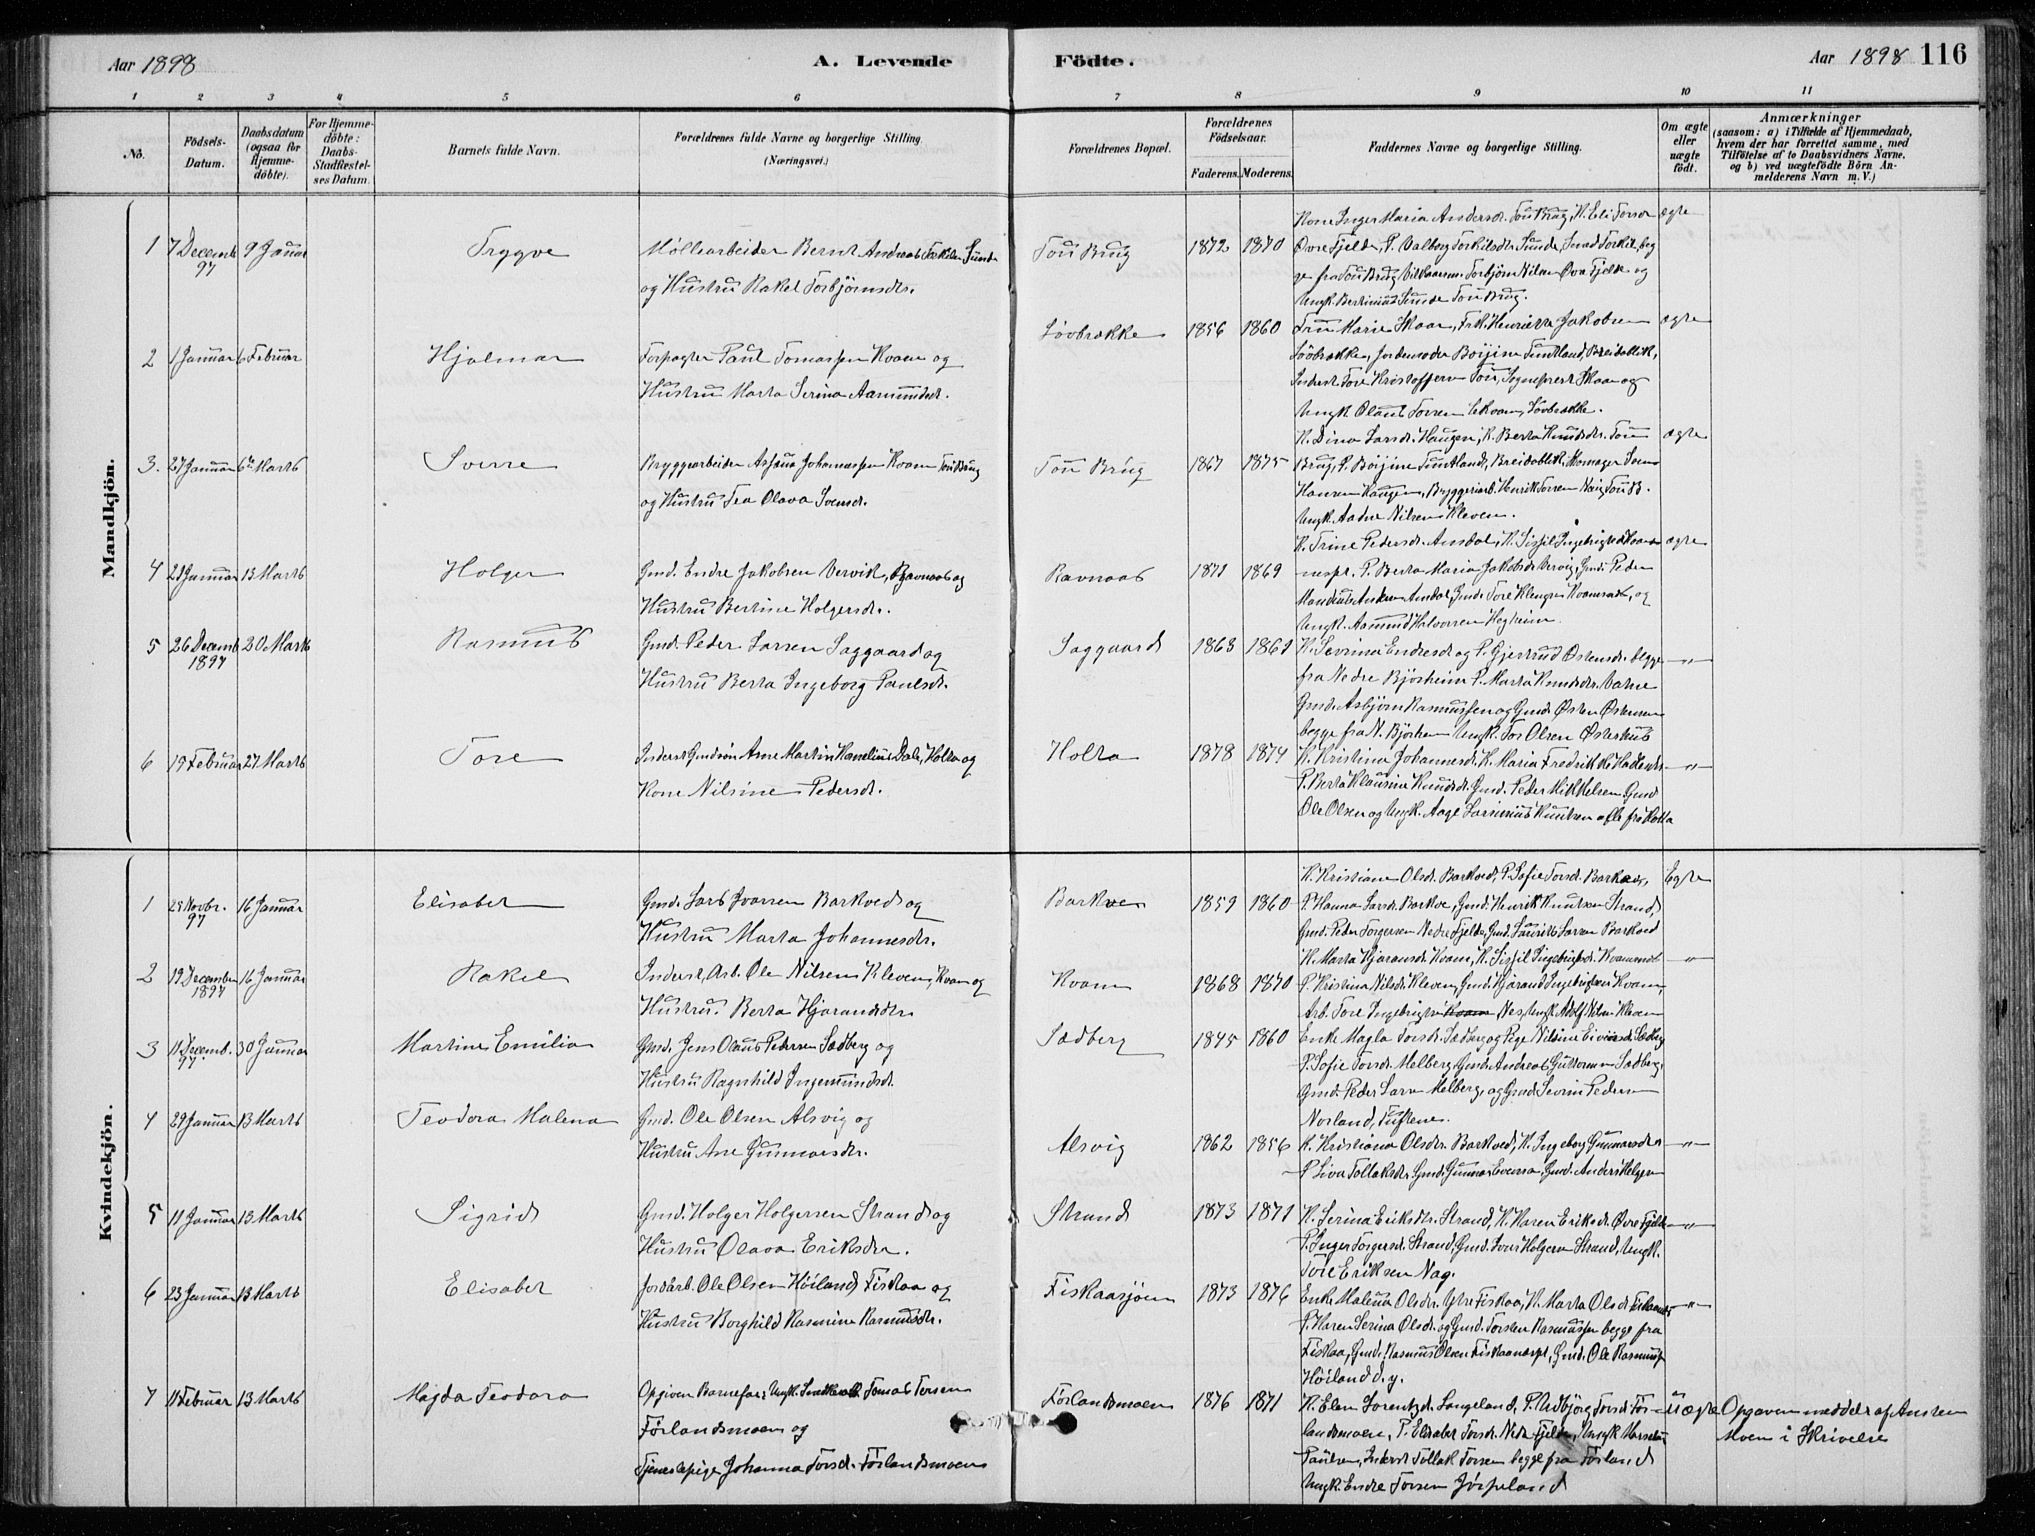 Aar 1898
A. Levende
Födte.
Aar 1898 116
1 2 3 4 5 6 7 8 9 10 11
No.
Födsels-Datum.
Daabsdatum (ogsaa for Hjemme-döbte).
For Hjemme-döbte: Daabs-Stadfæstel-ses Datum.
Barnets fulde Navn.
Forældrenes fulde Navne og borgerlige Stilling.
(Næringsvei.)
Forældrenes Bopæl.
Forældrenes Födselsaar.
Faderens. Moderens.
Faddernes Navne og borgerlige Stilling.
Om ægte eller uægte födt.
Anmærkninger
(saasom: a) i Tilfælde af Hjemmedaab, hvem der har forrettet samme, med Tilföielse af to Daabsvidners Navne, og b) ved uægtefödte Börn An-melderens Navn m. V.)
Mandkjön.
1 7 Decemb 97 9 Januar Trygve
Møllearbeider Bernt Andreas Torkilsen Sunde
og Hustru Rakel Torbjörnsdtr.
Tou Brug 1872 1870
Kone Inger Maria Andersd. Tou Brug, K. Eli Torsd. ægte
Øvre Fjelde, P. Valborg Torkilsdtr. Sunde, Smed Torkil, beg
ge fra Tou Brug, Torbjörn Nilsen Øvre Fjelde og
Ungk. Bertinius Sunde Tou Brug.
2 1 Januar 6 Februar Hjalmar
Forpagter Paul Tomassen Kvam og
Hustru Marta Serina Aamundsd.
Løvbrække 1856 1860
Fru Marie Skaar, Frk. Henriette Jakobsen ægte
Løvbrække, Jordemoder Böijine Tuntland, Breidablik,
Inderst Tore Kristoffersen Tou, Sogneprest Skaar og
Ungk. Olaus Torsen Kvam, Løvbrække.
3. 27 Januar 6te Marts Sverre
Bryggearbeider Johannessen Kvam Tou Brug
og Hustru Tea Olava Svensd.
Tou Brug 1867 1875
K. Dina Larsd. Haugen, K. Berta Knudsdtr. Tou ægte
Brug, P. Böijine Tuntland, Breidablik, Skomager Sven
Hansen Haugen, Bryggeriarb. Henrik Torsen Næs, Tou B.
Ungk. Aadne Nilsen Kleven.
4 23 Januar 13 Marts Holger
Gmd. Endre Jakobsen Vervik, Ravnaas og
Hustru Bertine Holgersd.
Ravnaas 1871 1869
K. Trine Pedersd. Amdal, K. Sissil Ingebrigtsd. ægte
nespt. P. Berta Maria Jakobsd. Vervig, Gmd. Peder
Amdal, Gmd. Tore Klungre Kvamsnæs, og
Ungk. Aamund Halvorsen Hegheim.
5 26 Decemb 1897 20 Marts Rasmus
Gmd. Peder Larsen Saggaard og
Hustru Berta Ingeborg Paulsd.
Saggaard 1863 1861
K. Sevrina Endresd. og P. Gjertrud Østensd. begge —"—
fra Nedre Bjørheim P. Marta Knudsdtr. Vatne
Gmd. Asbjørn Rasmussen og Gmd. Østen Østensen
begge fra N. Bjørheim Ungk. Tor Olsen Østerhus
6 19 Februar 27 Marts Tore
Inderst Gmdsøn Arne Martin Kornelius Dale, Holta og
Kone Nilsine Pedersd.
Holta 1878 1874
K. Kristina Johannesd. K. Maria Fredrikke —"—
P. Berta Klausine Knudsd. Gmd. Peder Mikkelsen Gmd.
Ole Olsen og Ungk. Aage Larsinius Knudsen alle fra Holta
Kvindekjön.
1 25 Novbr. 97 16 Januar Elisabet
Gmd. Lars Ivarsen Barkved og
Hustru Marta Johannesdtr.
Barkve 1859 1860
K. Kristiane Olsd. Barkved, P. Sofie Torsd. Barkved, Egte
P. Hanna Larsd. Barkve, Gmd. Henrik Knudsen Strand
Gmd. Peder Torgersen Nedre Fjelde, Gmd. Laurits Larsen Barkved
2 19 December 1897 16 Januar Rakel
Inderst, Arb. Ole Nilsen Kleven, Kvam og
Hustru Berta Hjorandsdtr.
Kvam 1868 1870
K. Marta Hjorandsd. Kvam, K. Sissil Ingebrigtsd. Kvamsnæs —"—
P. Kristina Nilsd. Kleven, Gmd. Hjorand Ingebrigtsen Kvam,
Arb. Tore Ingebrigtsen Kvam Nes, Ungk. Adolf Nilsen Kleven
3 11 Decemb. 97 30 Januar Martine Emilie
Gmd. Jens Olaus Pedersen Sedberg og
Hustru Ragnhild Ingemundsd.
Sedberg 1845 1860
Enke Magla Torsd. Sedberg og Pige Nilsine Eivindsd. Sedberg
P. Sofie Torsd. Melberg, Gmd. Andreas Guttormsen Sedberg,
Gmd. Peder Larsen Melberg, og Gmd. Sevrin Pedersen
Norland, Tuftene.
4 29 Januar 13 Marts Teodora Malena
Gmd. Ole Olsen Alsvig og
Hustru Ane Gunnarsdtr.
Alsvig 1862 1856
K. Kristiana Olsdtr. Barkved, K. Ingeborg Gunnarsdtr. —"—
P. Siva Tollaksdtr. Gmd. Gunnar Evensen, Gmd. Anders Helgesen
5 11 Januar 13 Marts Sigrid
Gmd. Holger Holgersen Strand og
Hustru Olava Eriksdtr.
Strand 1873 1871
K. Serina Eriksdtr. Strand, K. Karen Eriksdr. Øvre Fjelde —"—
P. Inger Torgersd. Strand, Gmd. Iver Holgersen Strand, Ungk.
Tore Eriksen Nag.
6 23 Januar 13 Marts Elisabet
Jordarb. Ole Olsen Höiland, Fiskaa og
Hustru Borghild Rasmine Rasmusdtr.
Fiskaasjøen 1873 1876
Enke Malena Olsdr. Ytre Fiskaa, K. Marta Olsd. —"—
P. Karen Serina Olsd. og Gmd. Torsten Rasmussen begge fra
Fiskaa, Gmd. Rasmus Olsen Fiskaanespt, Gmd. Ole Rasmussen
Höiland d. y.
7 11 Februar 13 Marts Magda Teodora
Opgiven Barnefar: Ungk. Tomas Torsen
Førlandsmoen og
Tjenestepige Johanna Torsd. Førlandsmoen
Førlandsmoen 1876 1871
K. Elen Lorentzd. Langeland, P. Torsd. Før- Uægte
landsmoen, P. Elisabet Torsdr. Nedre Fjelde, Ungk.
Paulsen, Inderst Tollak Torsen begge fra Førland
Ungk. Endre Torsen Jørpeland
Opgaven meddelt af
Moen i Skrivelse